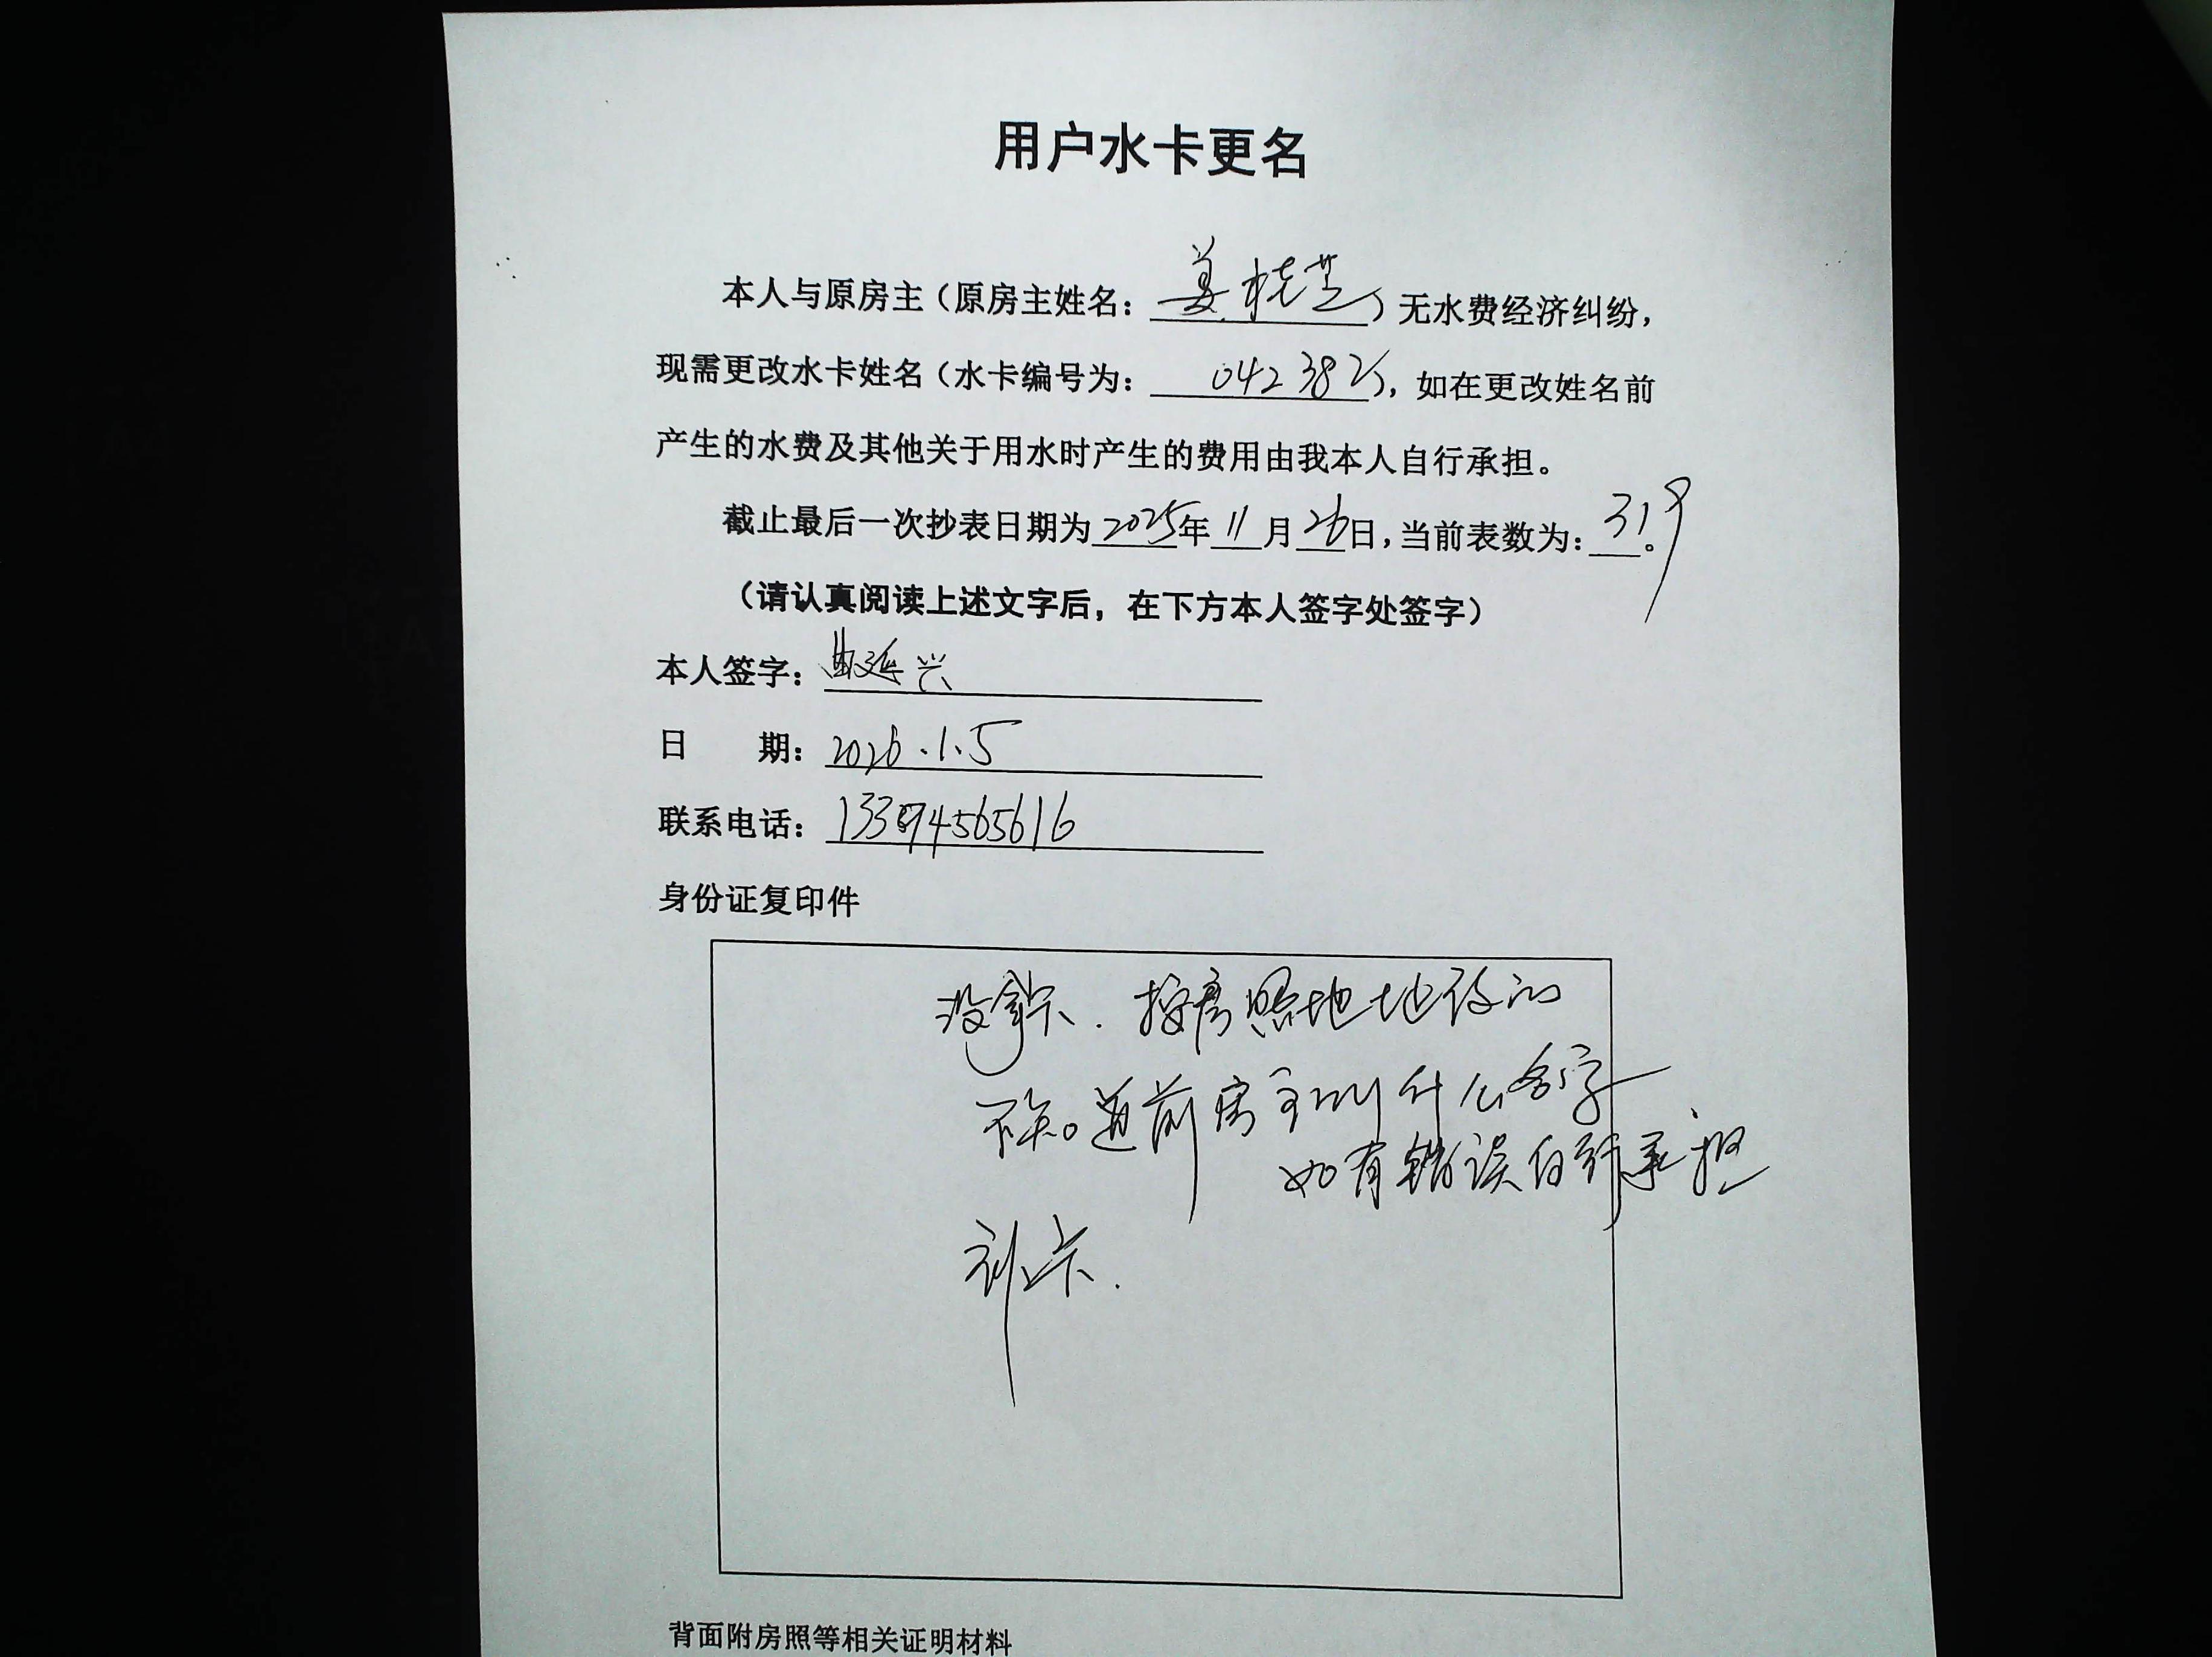 用户水卡更名
本人与原房主（原房主姓名：姜桂芝）无水费经济纠纷，
现需更改水卡姓名（水卡编号为：0423825），如在更改姓名前
产生的水费及其他关于用水时产生的费用由我本人自行承担。
截止最后一次抄表日期为2025年11月26日，当前表数为：319。
（请认真阅读上述文字后，在下方本人签字处签字）
本人签字：曲延兴
日 期：2026.1.5
联系电话：13394565616
身份证复印件
没拿卡．按房照地址改的
不知道前房主叫什么名字
如有错误自行承担
补卡．
背面附房照等相关证明材料